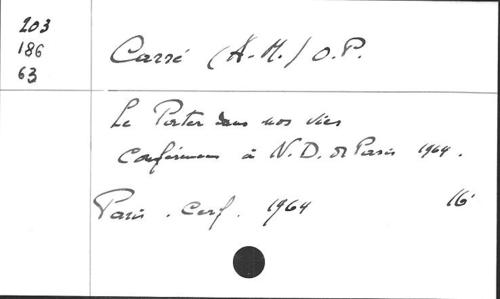 203
186
63
Carré (A.-M.) O.P.
Le Porter dans nos vies
Conférences à N.D. de Paris 1964.
Paris. Cerf. 1964 16